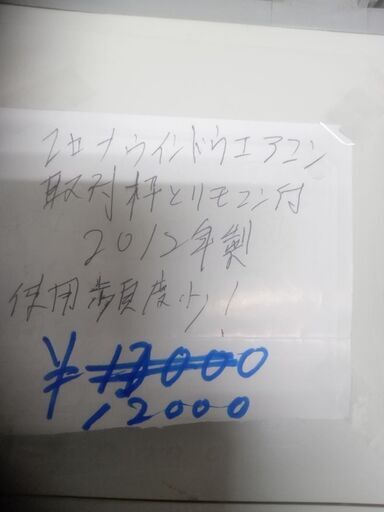 コロナウインドウエアコン
取付枠とリモコン付
2012年製
使用頻度少ない
¥
12000